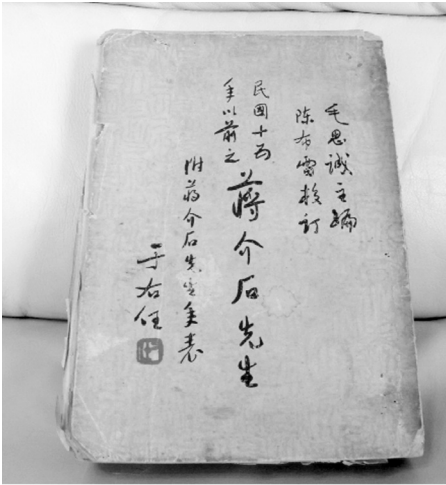 毛思誠主編
陈布雷校訂
民國十五
年以前之蔣介石先生
附蔣介石先生年表
于右任